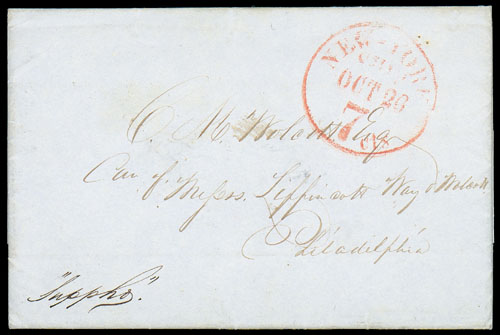 NEW-YORK
SHIP
OCT 26
7 cts
C. M. Wolcott Esq
Care of Messrs. Lippincott Way & Wolcott
Philadelphia
"Sappho".